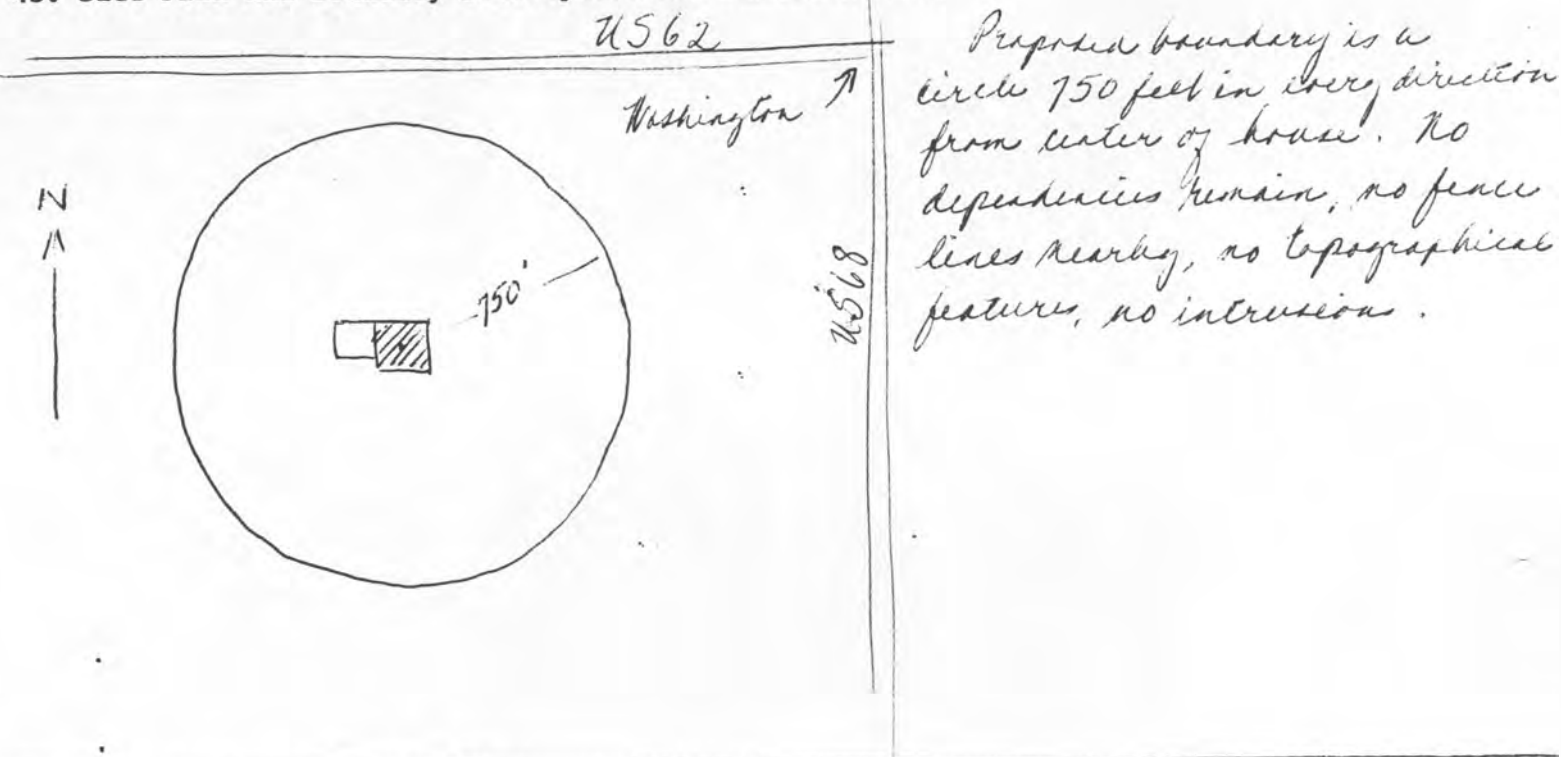 US62
Washington
N
750'
US68
Proposed boundary is a
circle 750 feet in every direction
from center of house. No
dependencies remain, no fence
lines nearby, no topographical
features, no intrusions.